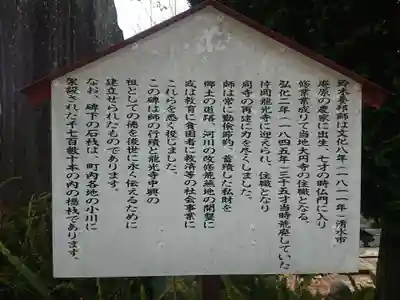 鈴木養邦師は文化八年(一八一一年)清水市
庵原の農家に出生、七才の時仏門に入り
修業業成りて当地大円寺の住職となる。
弘化二年(一八四五年)三十五才当時荒廃していた
片岡龍光寺に迎えられ、住職となり
同寺の再建に力を尽くしました。
師は常に勤倹節約、蓄積した私財を
郷土の道路、河川の改修荒蕪地の開墾に
或は教育に貧困者に救済等の社会事業に
これらを悉く投じました。
この碑は師の行積と龍光寺中興の
祖としての徳を後世に永く伝えるために
建立せられたものであります。
なお、碑下の石桟は、町内各地の小川に
架設された千七百数十本の内の橋桟であります。